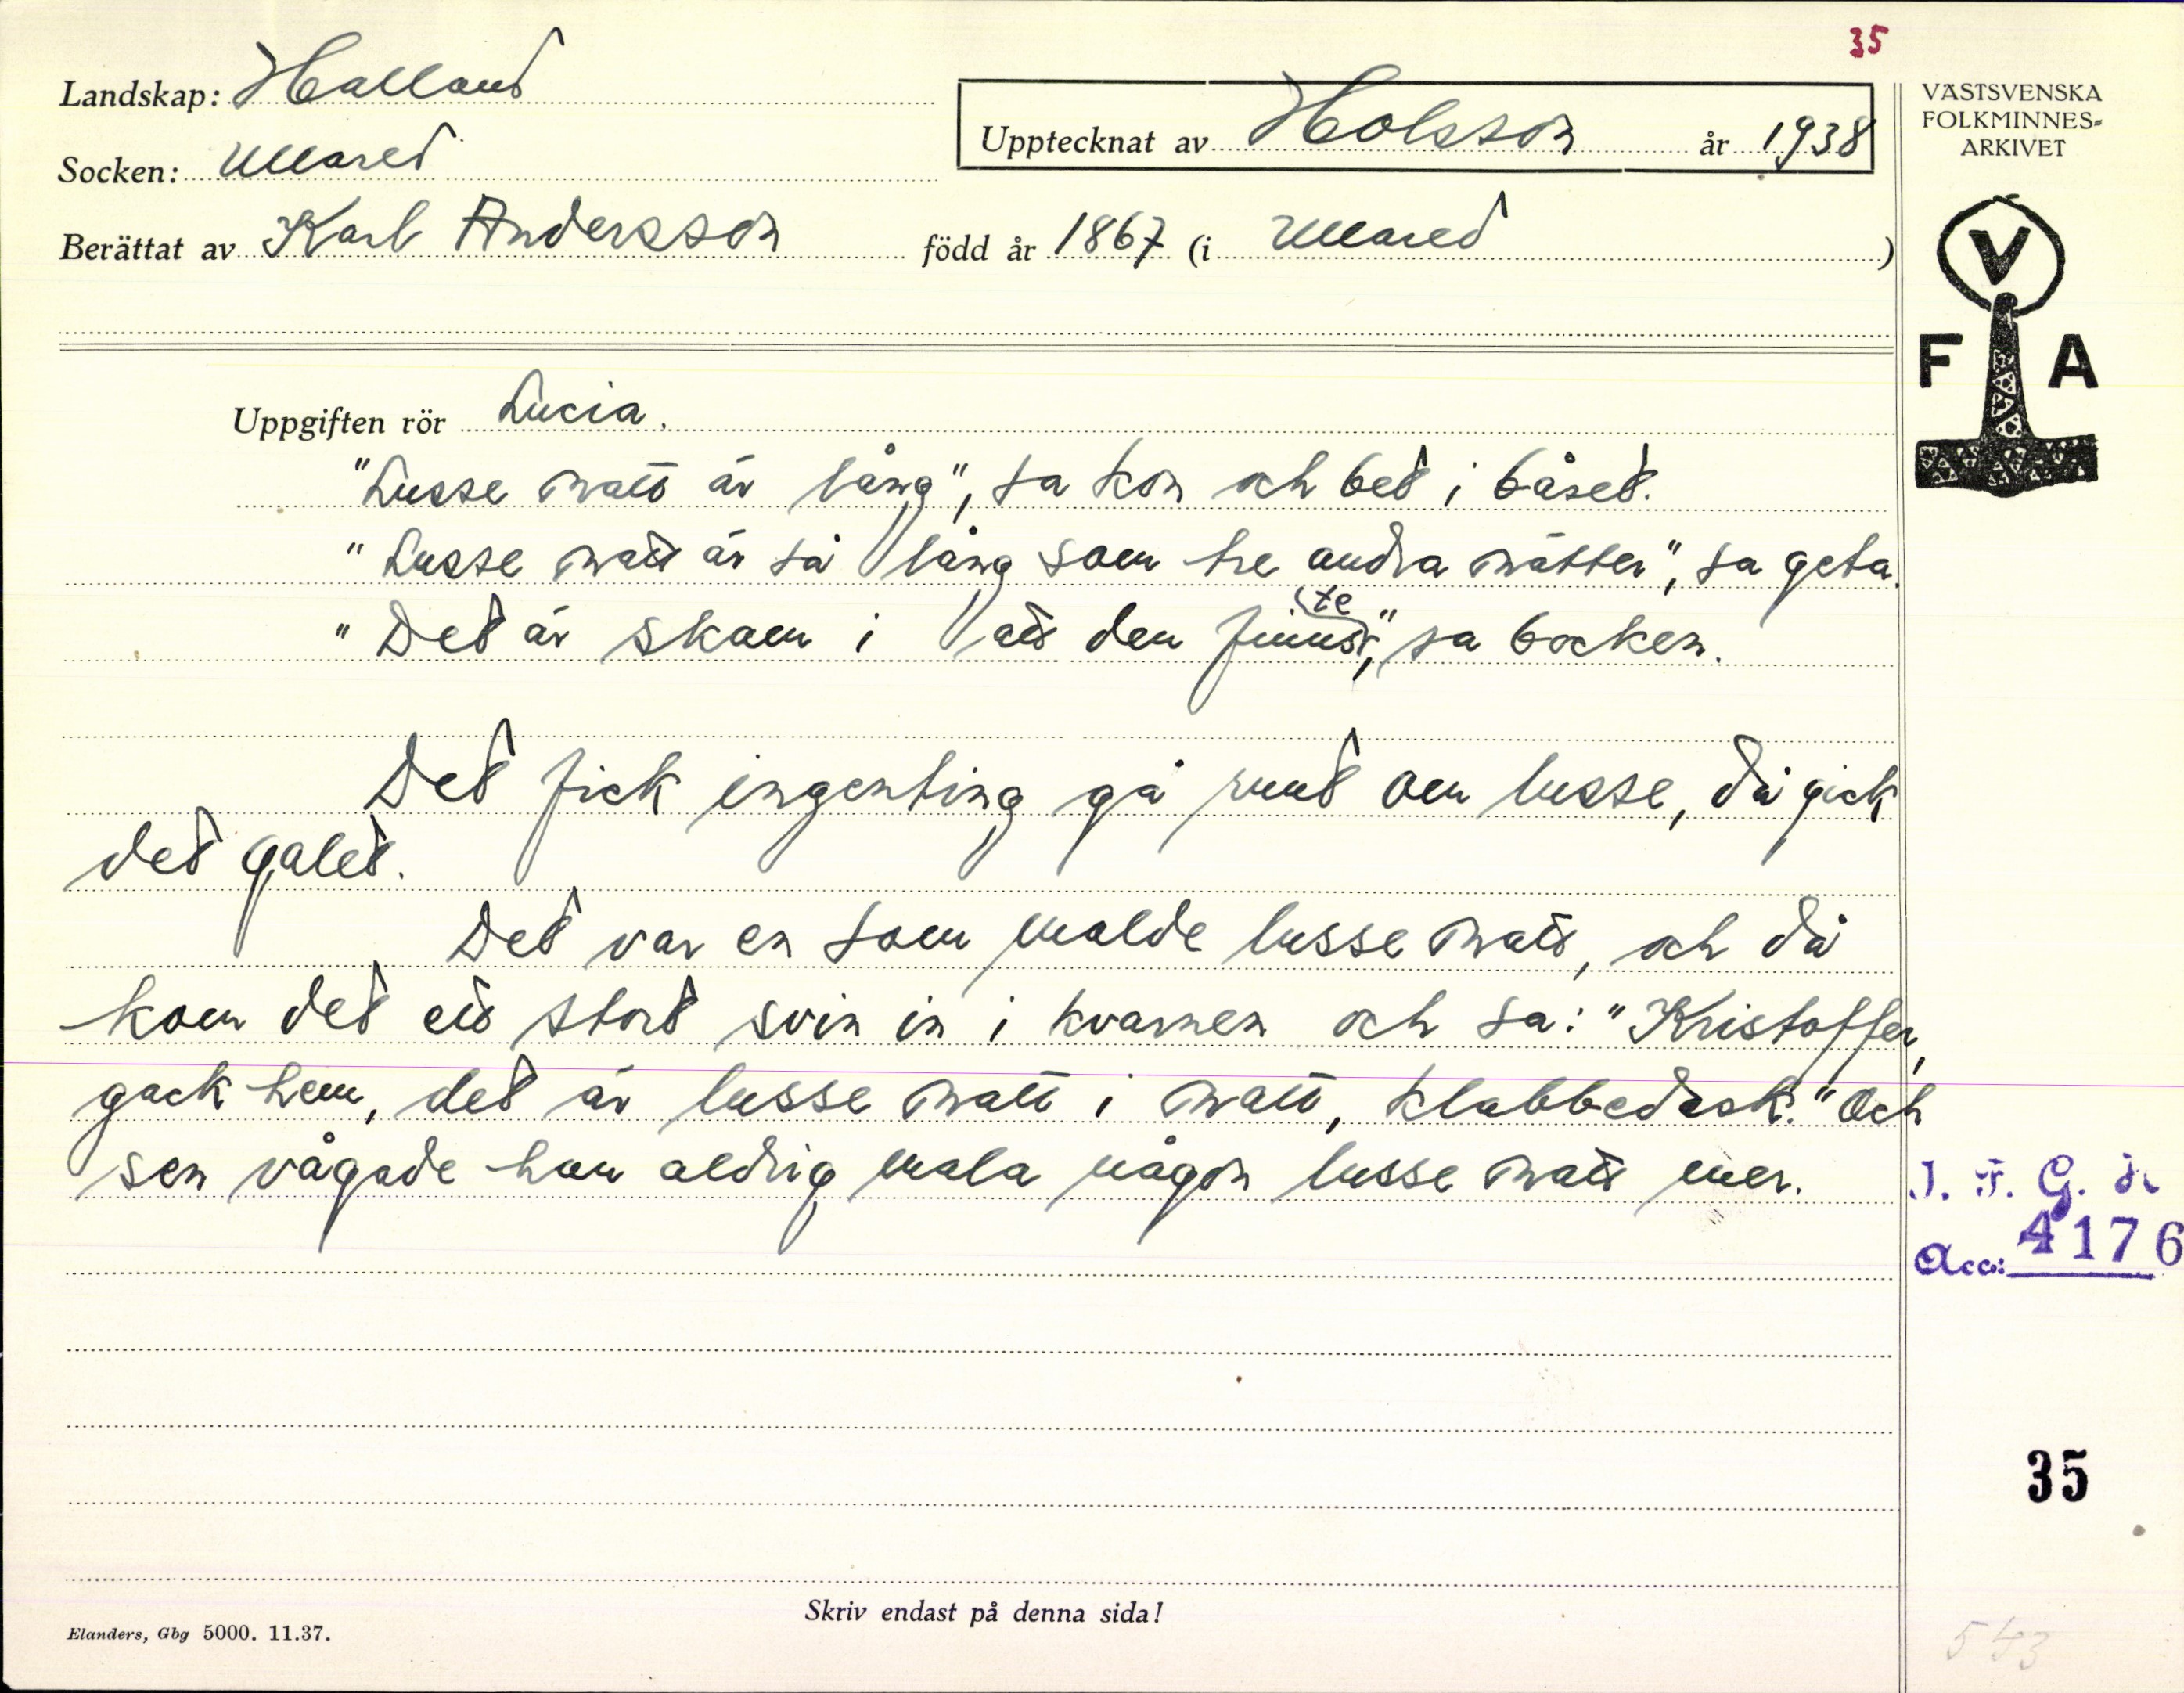 35
Landskap: Halland
Socken: Ullared
Upptecknat av Holsson år 1938
Berättat av Karl Andersson född år 1867 (i Ullared)
VÄSTSVENSKA
FOLKMINNES-
ARKIVET
V
F A
Uppgiften rör Lucia.
"Lusse natt är lång", sa kon och bet i båset.
"Lusse natt är så lång som tre andra nätter", sa geta.
"Det är skam i att den finns (te)", sa bocken.
Det fick ingenting gå runt om lusse, då gick
det galet.
Det var en som malde lusse natt, och då
kom det ett stort svin in i kvarnen och sa: "Kristoffer,
gack hem, det är lusse natt i natt, klabbedask." Och
sen vågade han aldrig mala någon lusse natt mer.
I. F. G. s
Acc: 4176
35
Skriv endast på denna sida!
Elanders, Gbg 5000. 11.37.
543